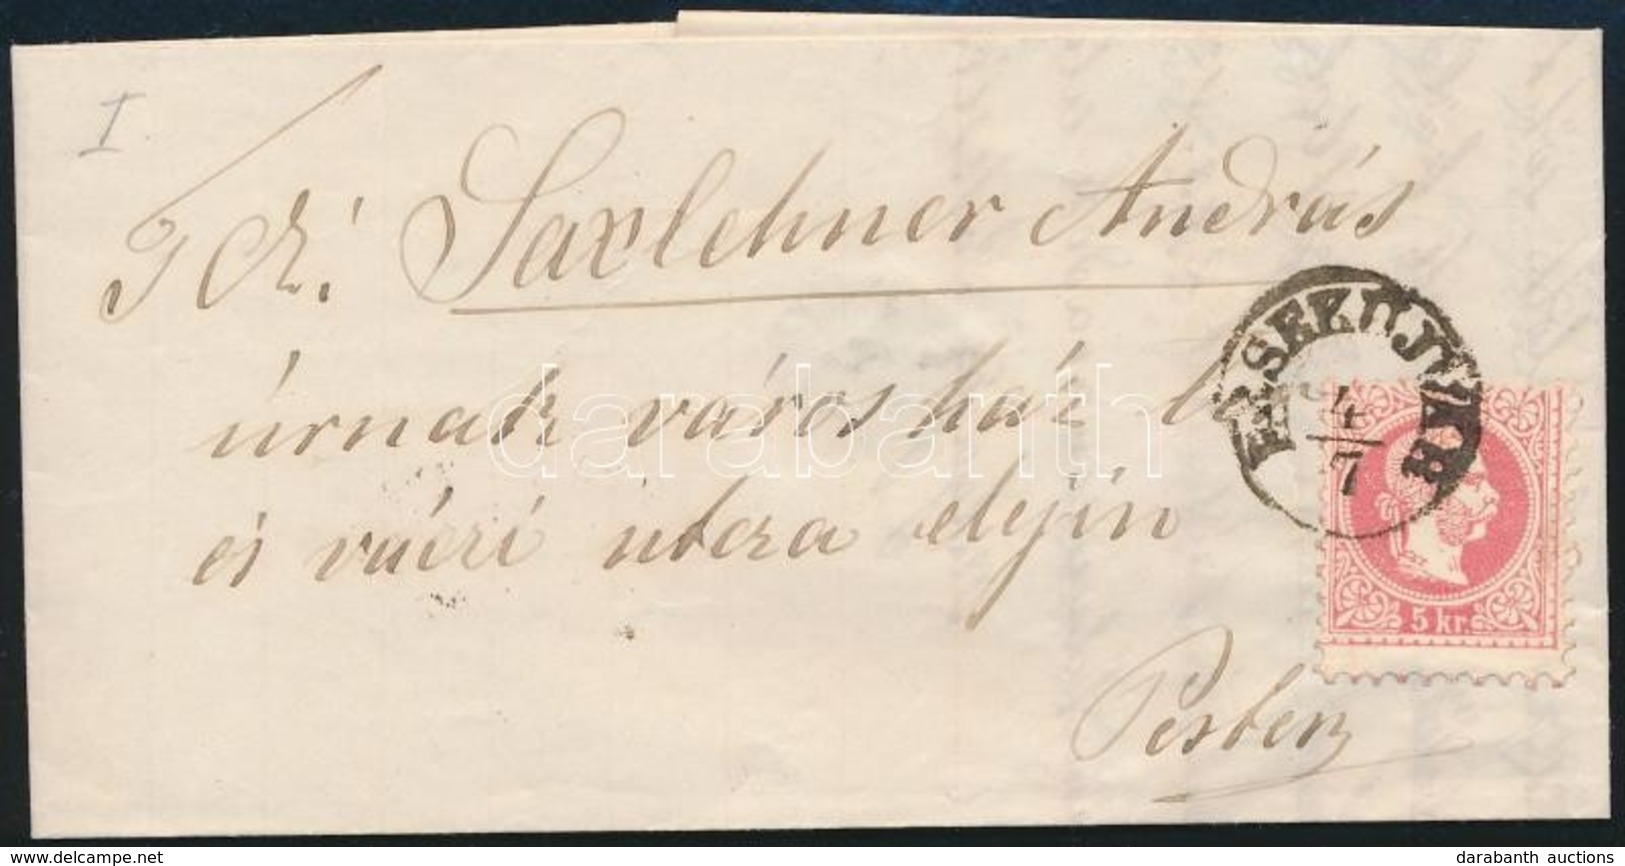 I.
T Cz! Saxlehner András
úrnak városház
és váczi utcza
Pesten
ÉRSEKUJVÁR
4
7
5 kr
darabanth
darabanth auctions
www.delcampe.net